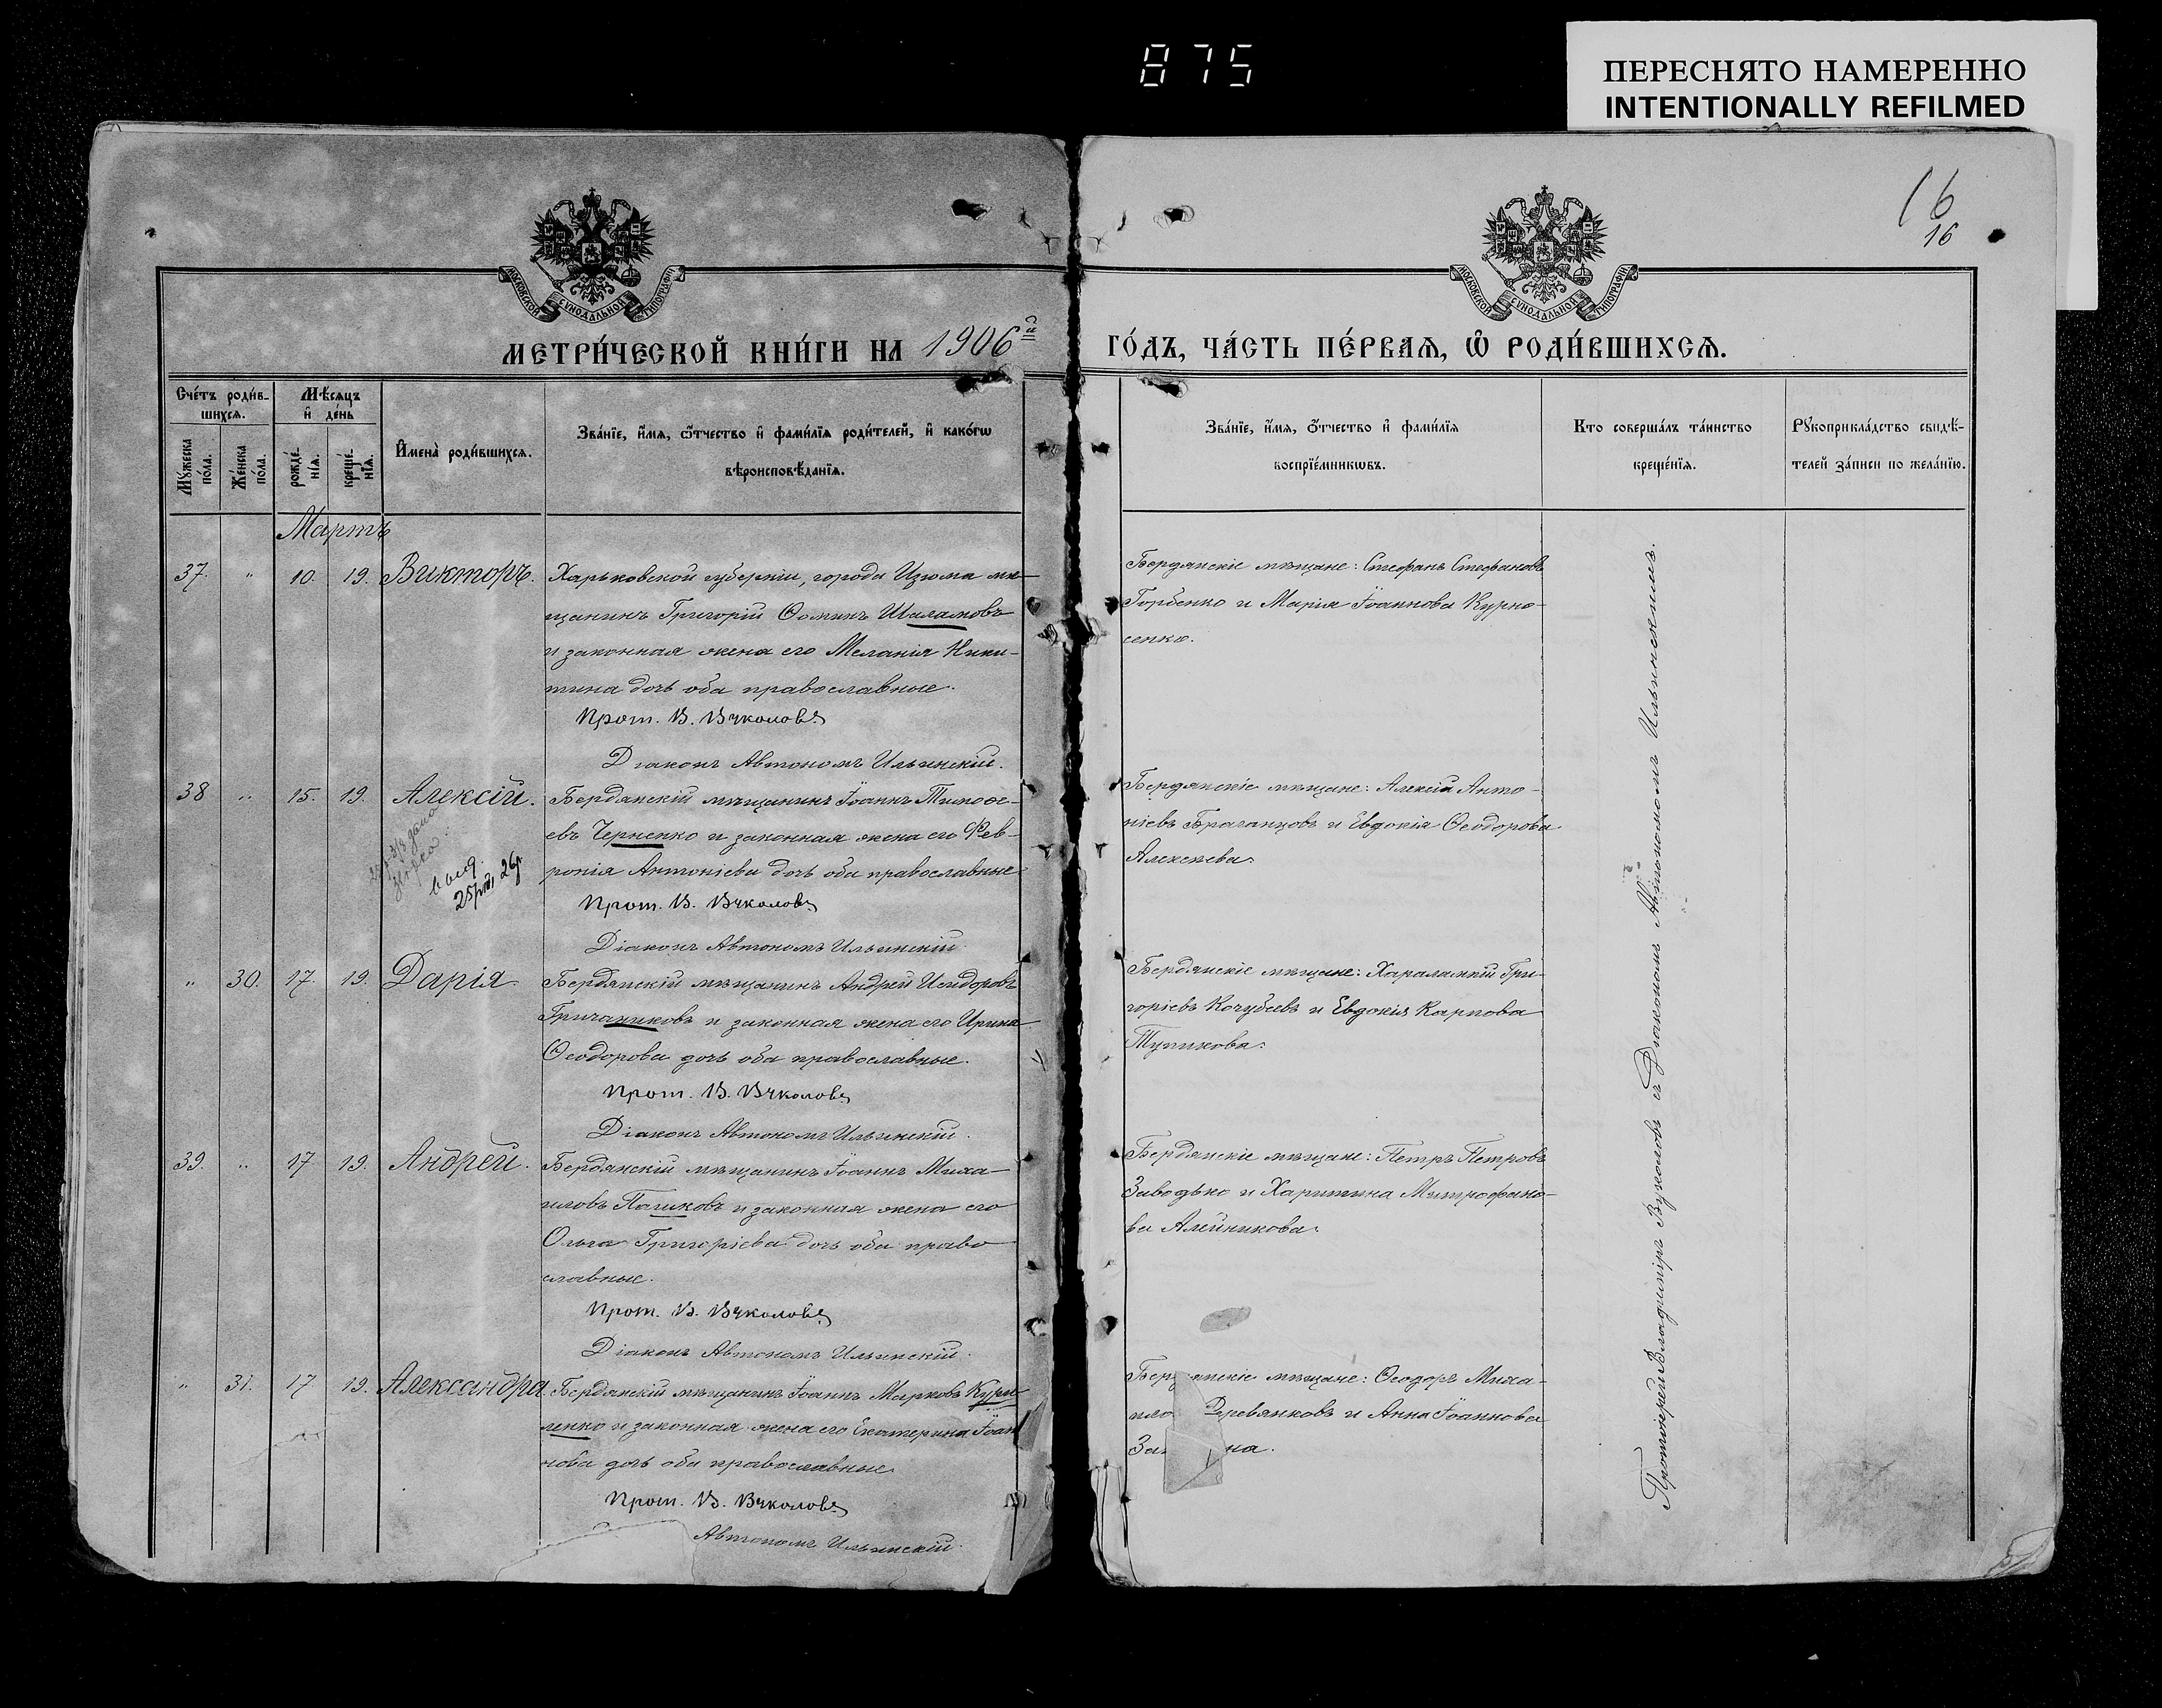 875
ПЕРЕСНЯТО НАМЕРЕННО
INTENTIONALLY REFILMED
16
16
МОСКОВСКОЙ СѴНОДАЛЬНОЙ ТИПОГРАФІИ
МОСКОВСКОЙ СѴНОДАЛЬНОЙ ТИПОГРАФІИ
МЕТРИ́ЧЕСКОЙ КНИ́ГИ НА 1906й
ГО́ДЪ, ЧА́СТЬ ПЕ́РВАѦ, Ѽ РОДИ́ВШИХСѦ.
Сче́тъ роди́в-
шихсѧ.
Мꙋжеска по́ла.
Же́нска по́ла.
Мѣ́сѧцъ
и҆ де́нь
рожде́-
нїѧ.
креще́-
нїѧ.
И҆мена̀ роди́вшихсѧ.
Зва́нїе, и҆́мѧ, ѻ҆́тчество и҆ фами́лїѧ роди́телей, и҆ како́гѡ
вѣроисповѣ́данїѧ.
Зва́нїе, и҆́мѧ, ѻ҆́тчество и҆ фами́лїѧ
воспрїе́мникѡвъ.
Кто соверша́лъ та́инство
креще́нїѧ.
Рꙋкоприкла́дство свидѣ́-
телей за́писи по жела́нїю.
Мартъ
37. " 10. 19. Викторъ.
Харьковской губерніи, города Изюма мѣ-
щанинъ Григорій Ѳоминъ Шаламовъ
и законная жена его Меланія Ники-
тина дочь оба православные.
Прот. В. Вуколовъ
Діаконъ Автономъ Ильинскій.
Бердянскіе мѣщане: Стефанъ Стефановъ
Горбенко и Марія Іоаннова Курно-
сенко.
38 " 15. 19. Алексій.
выд.
Бердянскій мѣщанинъ Іоаннъ Тимоѳе-
евъ Черненко и законная жена его Фев-
ронія Антоніева дочь оба православные
Прот. В. Вуколовъ
Діаконъ Автономъ Ильинскій
Бердянскіе мѣщане: Алексій Анто-
ніевъ Браганцовъ и Евдокія Ѳеодорова
Алексѣева.
" 30. 17. 19. Дарія
Бердянскій мѣщанинъ Андрей Исидоровъ
Гричаниковъ и законная жена его Ирина
Ѳеодорова дочь оба православные.
Прот. В. Вуколовъ
Діаконъ Автономъ Ильинскій.
Бердянскіе мѣщане: Харалампій Гри-
горіевъ Кочубеевъ и Евдокія Карпова
Тупикова.
39. " 17 19. Андрей.
Бердянскій мѣщанинъ Іоаннъ Миха-
иловъ Пашковъ и законная жена его
Ольга Григоріева дочь оба право
славные.
Прот. В. Вуколовъ
Діаконъ Автономъ Ильинскій.
Бердянскіе мѣщане: Петръ Петровъ
Заводько и Харитина Митрофано-
ва Алейникова.
" 31. 17 19. Александра
Бердянскій мѣщанинъ Іоаннъ Марковъ Кури
ленко и законная жена его Екатерина Іоан
нова дочь оба православные.
Прот. В. Вуколовъ
Автономъ Ильинскій.
мѣщане: Ѳеодоръ Миха-
Деревянковъ и Анна Іоаннова
Протоіерей Владиміръ Вуколовъ съ Діакономъ Автономомъ Ильинскимъ.